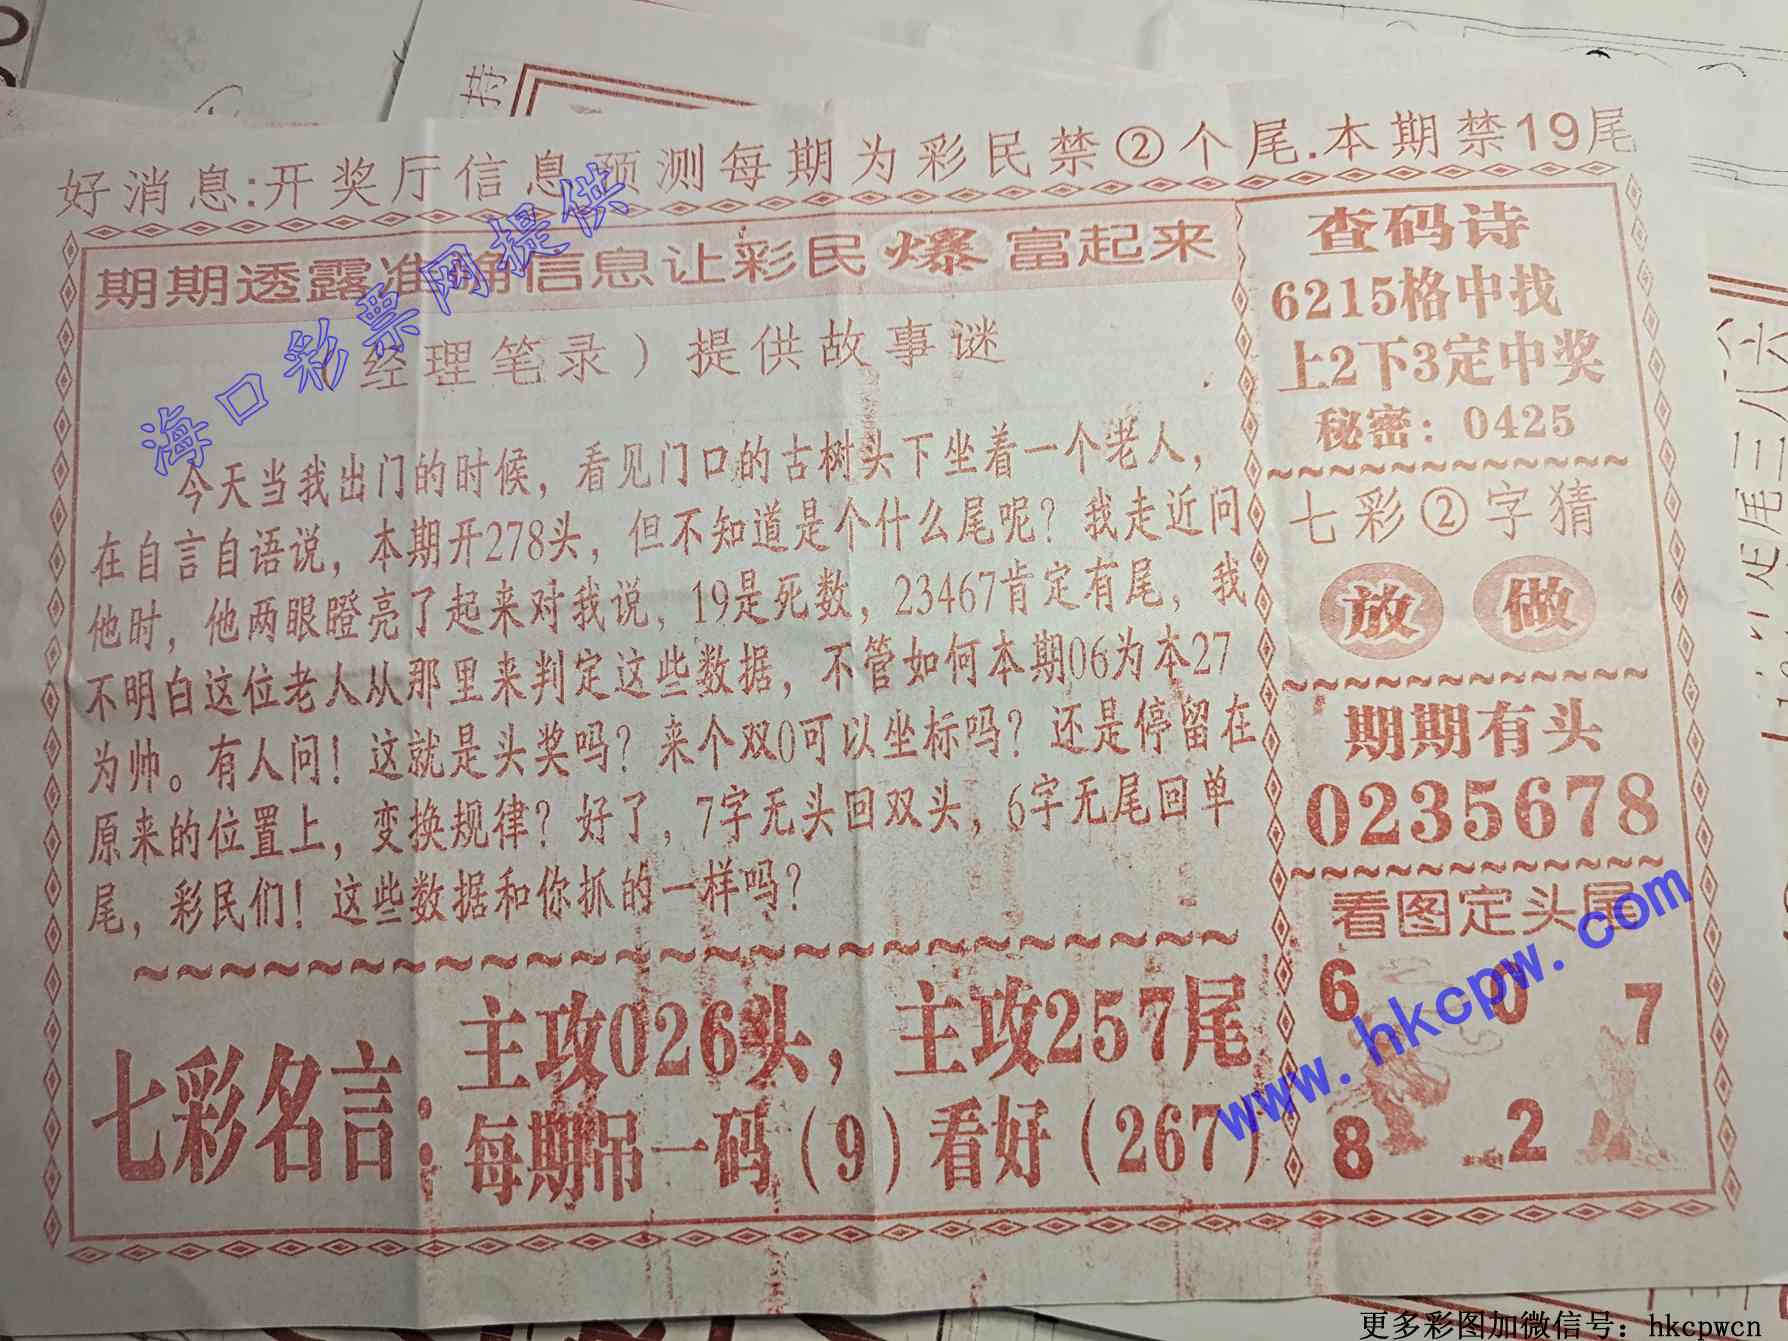 好消息:开奖厅信息预测每期为彩民禁②个尾.本期禁19尾
期期透露准确信息让彩民爆富起来
（经理笔录）提供故事谜
今天当我出门的时候，看见门口的古树头下坐着一个老人，
在自言自语说，本期开278头，但不知道是个什么尾呢？我走近问
他时，他两眼瞪亮了起来对我说，19是死数，23467肯定有尾，我
不明白这位老人从那里来判定这些数据，不管如何本期06为本27
为帅。有人问！这就是头奖吗？来个双0可以坐标吗？还是停留在
原来的位置上，变换规律？好了，7字无头回双头，6字无尾回单
尾，彩民们！这些数据和你抓的一样吗？
七彩名言：
主攻026头，主攻257尾
每期吊一码（9）看好（267）
查码诗
6215格中找
上2下3定中奖
秘密：0425
七彩②字猜
放 做
期期有头
0235678
看图定头尾
6 0 7
8 2
海口彩票网提供
www.hkcpw.com
更多彩图加微信号：hkcpwcn
持